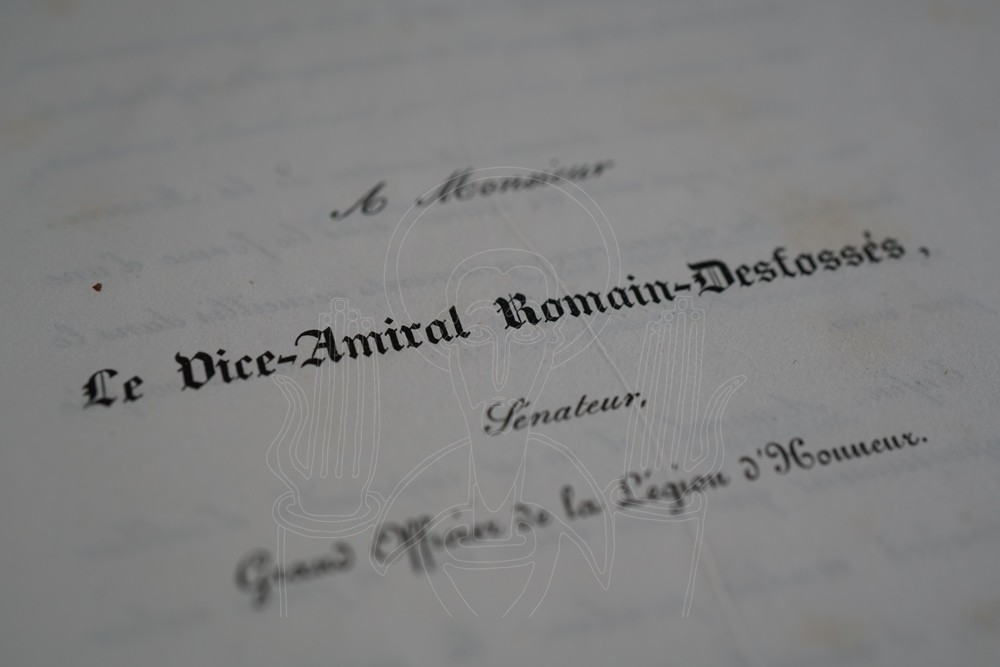 A Monsieur
Le Vice-Amiral Romain-Desfossés,
Sénateur,
Grand Officier de la Légion d'Honneur.